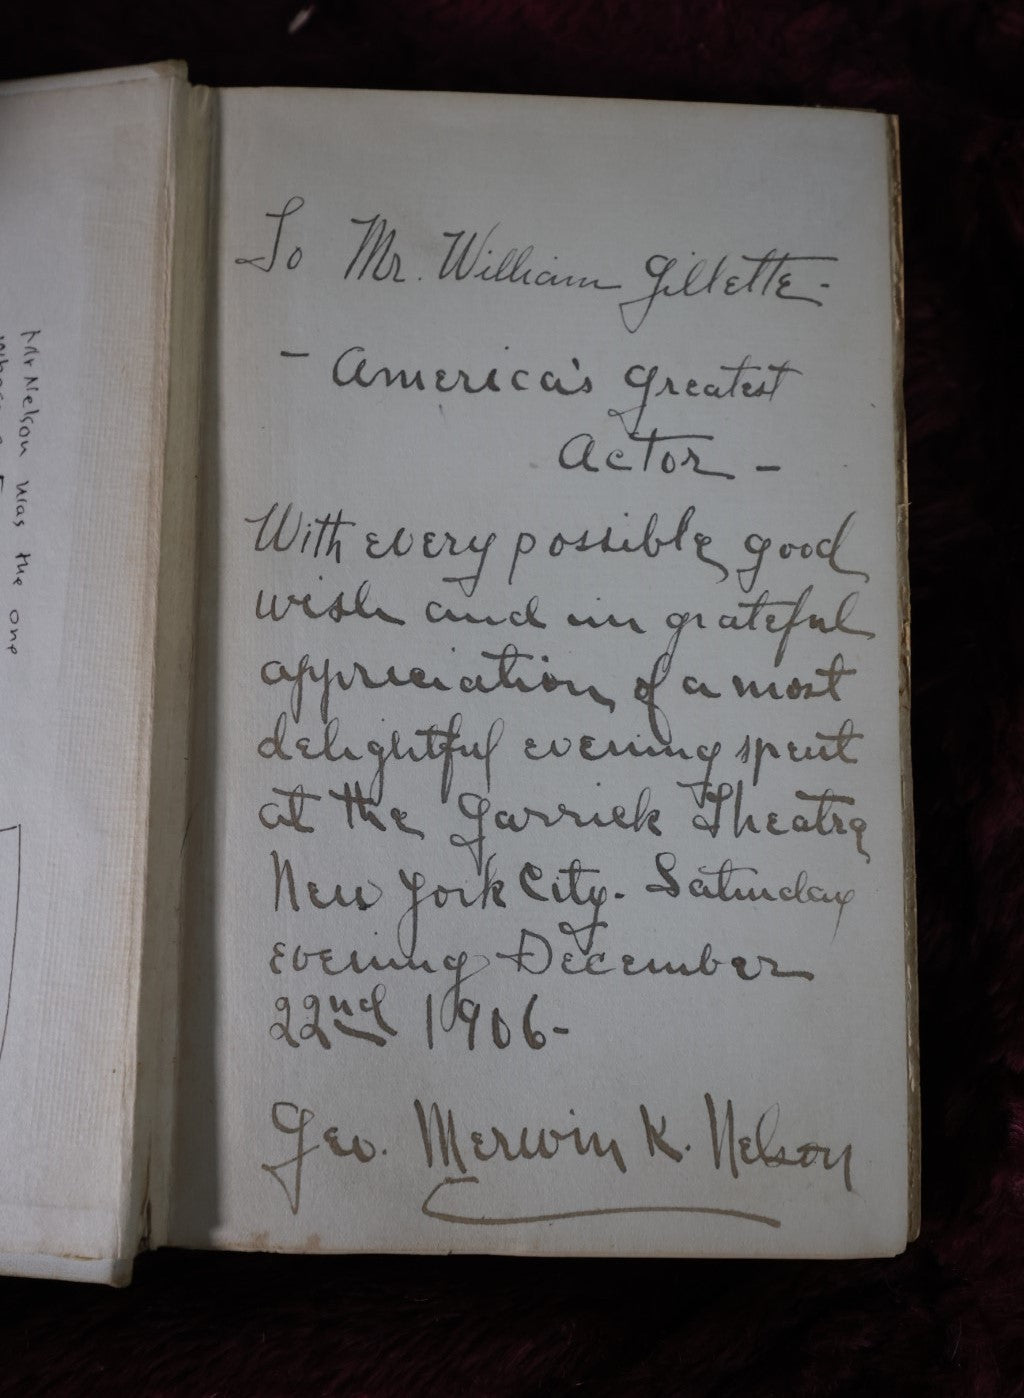 To Mr. William Gillette -
- America's Greatest
Actor -
With every possible good
wish and in grateful
appreciation of a most
delightful evening spent
at the Garrick Theatre
New York City. Saturday
evening December
22nd 1906-
Geo. Merwin K. Nelson
Mr Nelson was the one